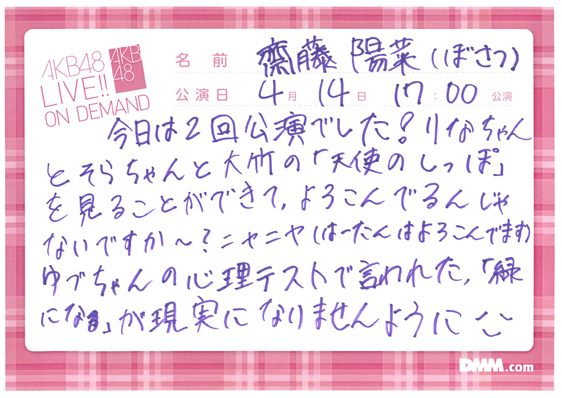 AKB48
LIVE!!
ON DEMAND
AKB
48
名前 齋藤 陽菜(ぼさつ)
公演日 4月 14日 17:00 公演
今日は2回公演でした!りなちゃん
とそらちゃんと大竹の「天使のしっぽ」
を見ることができて、よろこんでるんじゃ
ないですか〜?ニヤニヤ(はーたんはよろこんでます)
ゆづちゃんの心理テストで言われた、「緑
になる」が現実になりませんように
DMM.com